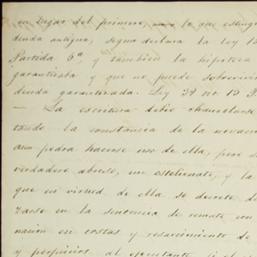 en lugar del primero, lo que extingue
deuda antigua, segun declara la Ley 15
Partida 5ª, y tambien la hipoteca
garantizaba y que no puede sobrevivir
deuda garantizada. Ley 38 tit 13 P
— La escritura debio chancelarse
tando la constancia de la novacion
aun podra hacerse uso de ella, pero se
verdadero abuso, un estelionato, y la
que en virtud de ella se decrete, de
zarse en la sentencia de remate con
nacion en costas y resarcimiento de
y perjuicios al ejecutante